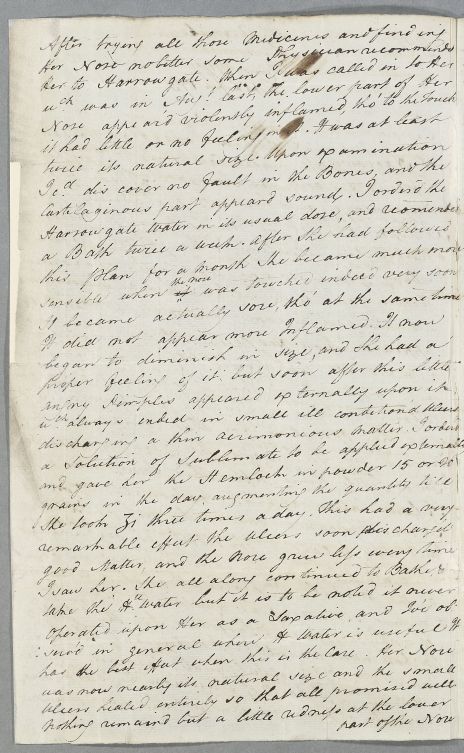 After trying all those Medicines and finding
Her Nose no better some Physician recommends
Her to Harrowgate. When I was called in to Her
wch was in Augt last, the lower part of Her
Nose appeard violently inflamed, tho to the touch
it had little or no feeling in it. It was at least
twice its natural size. Upon examination
I cd discover no fault in the Bones, and the
Cartilaginous part appeard sound. I orderd the
Harrowgate Water in its usual dose, and recomended
a Bath twice a week. After she had followed
this plan for a month she became much more
sensible when the nose was touched indeed very soon
It became actually sore, tho' at the same time
It did not appear more Inflamed. It now
began to diminish in size, and she had a
proper feeling of it. but soon after this little
angry Pimples appeared externally upon it
wch always ended in small ill conditiond Ulcers
discharging a thin acrimonious matter. I orderd
a Solution of Sublimate to be applied externally
and gave her the Hemlock in powder 15 or 20
grains in the day augmenting the quantity till
She took ʒi three times a day. This had a very
remarkable effect the Ulcers soon discharged
good Matter, and the Nose grew less every time
I saw her. She all along continued to Bathe &
take the H Water but it is to be noted it never
operated upon Her as a Laxative, and I've ob
:servd in general where H Water is useful It
has the best effect when this is the Case. Her Nose
was now nearly its natural size and the small
Ulcers healed entirely so that all promised well
nothing remaind but a little redness at the lower
part of the Nose